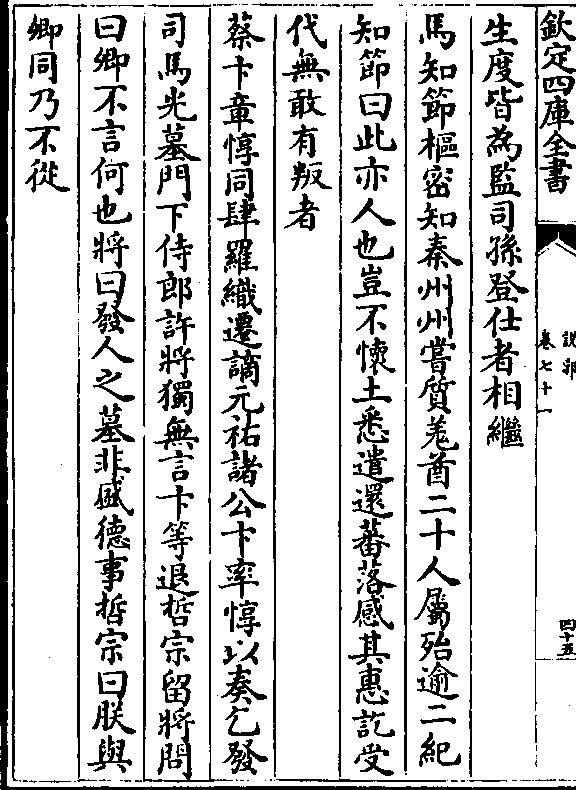 欽定四庫全書
說郛
卷七十一
四十五
生度皆為監司孫登仕者相繼
馬知節樞密知秦州州嘗質羌酋二十人屬殆逾二紀
知節曰此亦人也豈不懷土悉遣還蕃落感其惠訖受
代無敢有叛者
蔡卞章惇同肆羅織遷謫元祐諸公卞率惇以奏乞發
司馬光墓門下侍郎許將獨無言卞等退哲宗留將問
曰卿不言何也將曰發人之墓非盛德事哲宗曰朕與
卿同乃不從